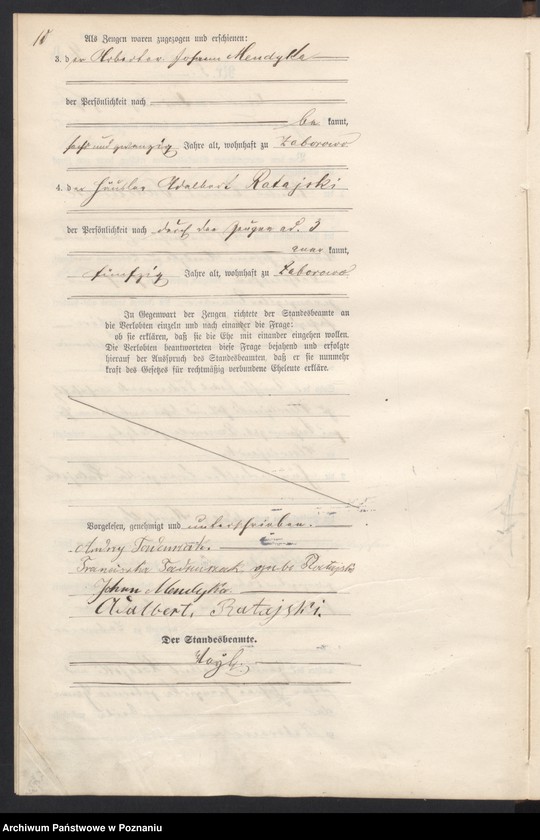 10
Als Zeugen waren zugezogen und erschienen:
3. der Arbeiter Johann Mendyka
der Persönlichkeit nach
be kannt,
sechs und zwanzig Jahre alt, wohnhaft zu Zaborowo
4. der Häusler Adalbert Ratajski
der Persönlichkeit nach durch den Zeugen ad. 3
kannt,
fünfzig Jahre alt, wohnhaft zu Zaborowo
In Gegenwart der Zeugen richtete der Standesbeamte an
die Verlobten einzeln und nach einander die Frage:
ob sie erklären, daß sie die Ehe mit einander eingehen wollen.
Die Verlobten beantworteten diese Frage bejahend und erfolgte
hierauf der Ausspruch des Standesbeamten, daß er sie nunmehr
kraft des Gesetzes für rechtmäßig verbundene Eheleute erkläre.
Vorgelesen, genehmigt und unterschrieben.
Franciszka Ratajski
Johann Mendyka
Adalbert Ratajski.
Der Standesbeamte.
Archiwum Państwowe w Poznaniu